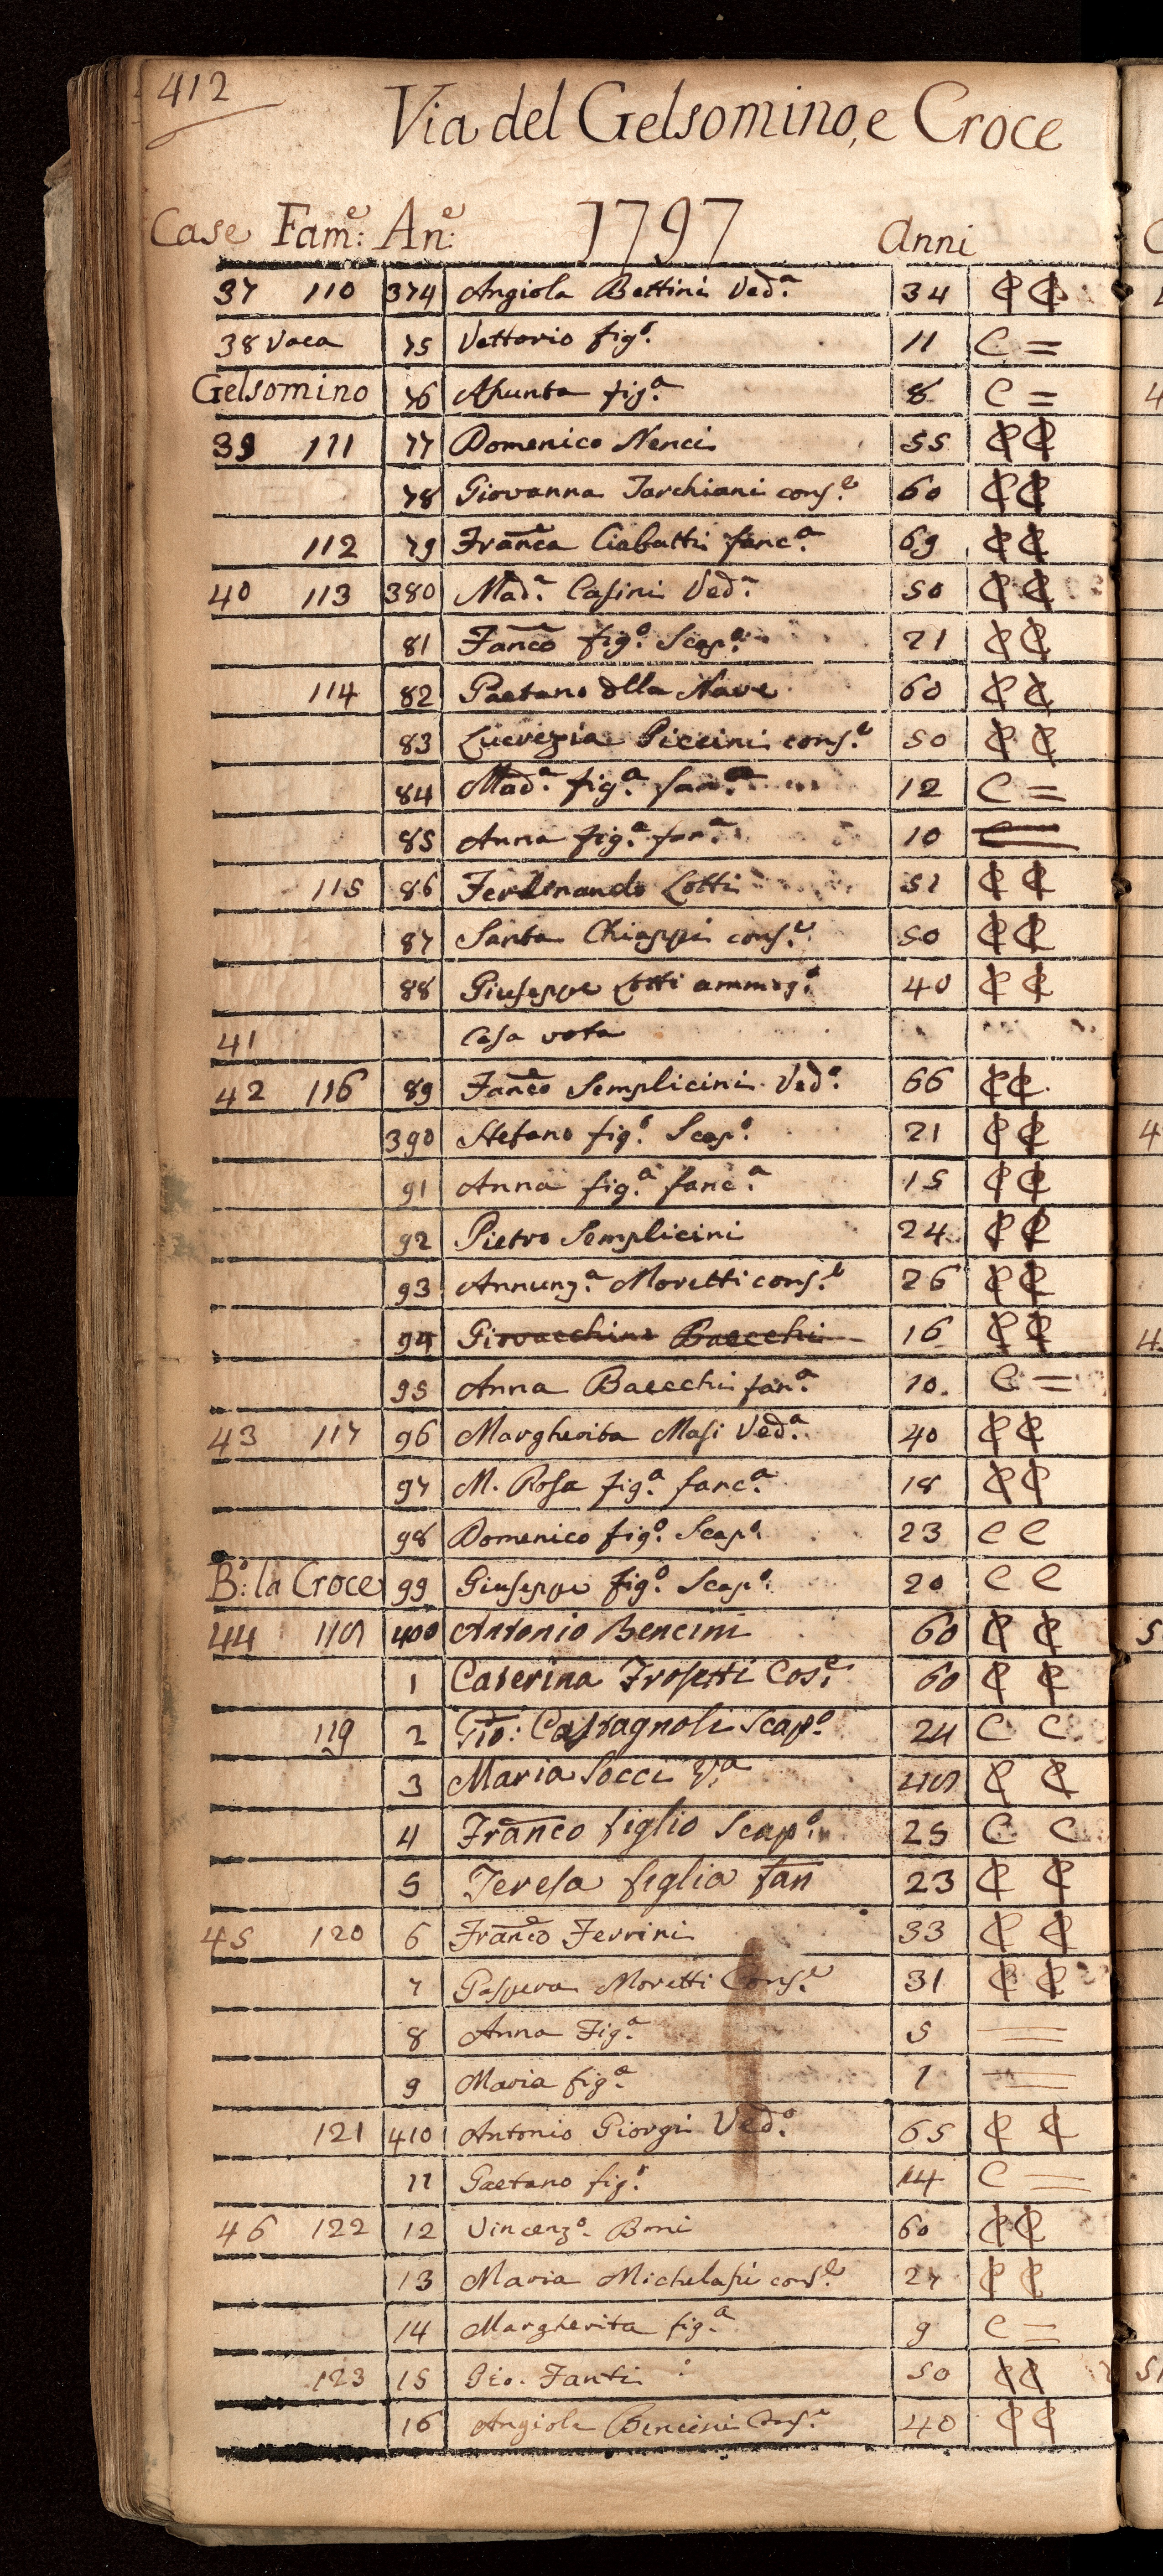 412
Via del Gelsomino, e Croce
Case Fam:e An:e 1797 Anni
37 110 374 Angiola Bettini Ved.a 34 C C
38 Voca 75 Vettorio fig.o 11 C =
Gelsomino 76 Asunta fig.a 8 C =
39 111 77 Domenico Nenci 55 C C
78 Giovanna Tarchiani cons.e 60 C C
112 79 Franca Ciabatti fanc.a 69 C C
40 113 380 Mad.a Casini Ved.a 50 C C
81 Fanco fig.o Scap.o 21 C C
114 82 Gaetano dlla Nave 60 C C
83 Lucrezia Piccini cons.e 50 C C
84 Mad.a fig.a fan.a 12 C =
85 Anna fig.a fan.a 10 C =
115 86 Ferdinando Lotti 51 C C
87 Santa Chiappi cons.e 50 C C
88 Giuseppe Lotti ammog.o 40 C C
41 Casa vota
42 116 89 Fanco Semplicini Ved.o 66 C C
390 Stefano fig.o Scap.o 21 C C
91 Anna fig.a fanc.a 15 C C
92 Pietro Semplicini 24 C C
93 Annunz.a Moretti cons.e 26 C C
94 Giovacchino Baecchi 16 C C
95 Anna Baecchi fan.a 10 C =
43 117 96 Margherita Masi Ved.a 40 C C
97 M. Rosa fig.a fanc.a 18 C C
98 Domenico fig.o Scap.o 23 C C
B.o: la Croce 99 Giuseppe fig.o Scap.o 20 C C
44 118 400 Antonio Bencini 60 C C
1 Caterina Frosetti Cos.e 60 C C
119 2 Gio: Castagnoli Scap.o 24 C C
3 Maria Socci V.a 48 C C
4 Franco figlio Scap.o 25 C C
5 Teresa figlia fan 23 C C
45 120 6 Franco Ferrini 33 C C
7 Gaspera Moretti Cons.e 31 C C
8 Anna Fig.a 5 =
9 Maria fig.a 1 =
121 410 Antonio Giorgi Ved.o 65 C C
11 Gaetano fig.o 14 C =
46 122 12 Vincenz.o Boni 60 C C
13 Maria Michelasi cons.e 27 C C
14 Margherita fig.a 9 C =
123 15 Gio. Fanti 50 C C
16 Angiola Bencini Cons.e 40 C C